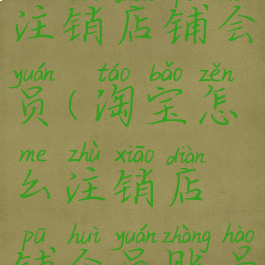 注销店铺会
yuán táo bǎo zěn
员(淘宝怎
me zhù xiāo diàn
么注销店
pū huì yuán zhàng hào
铺会员账号